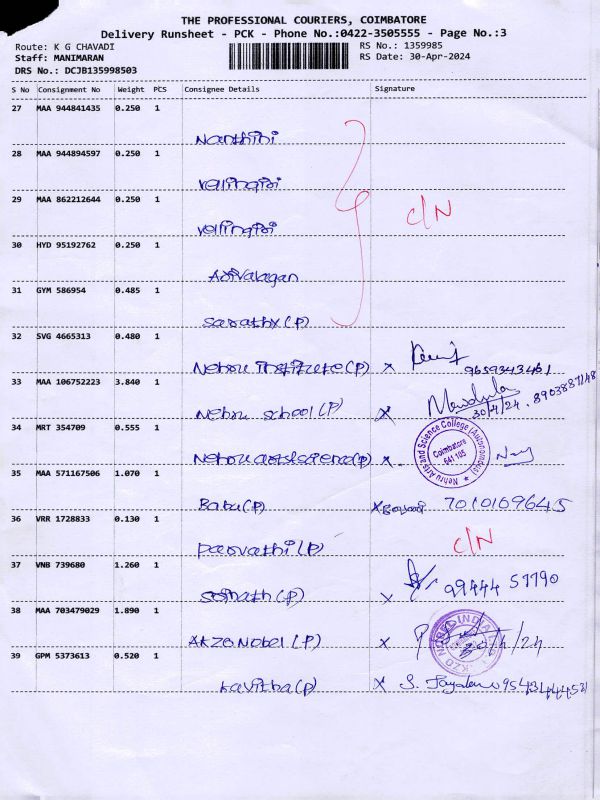 THE PROFESSIONAL COURIERS, COIMBATORE
Delivery Runsheet - PCK - Phone No.:0422-3505555 - Page No.:3
Route: K G CHAVADI
RS No.: 1359985
Staff: MANIMARAN
RS Date: 30-Apr-2024
DRS No.: DCJB135998503
S No Consignment No Weight PCS Consignee Details Signature
27 MAA 944841435 0.250 1
Nanthini
28 MAA 944894597 0.250 1
vellingiri
29 MAA 862212644 0.250 1
vellingiri
C/N
30 HYD 95192762 0.250 1
Arivalagan
31 GYM 586954 0.485 1
Sarathy (P)
32 SVG 4665313 0.480 1
Nehru Institute (P) x 9659343461
33 MAA 106752223 3.840 1
Nehru school (P) x 30/4/24. 8903887148
34 MRT 354709 0.555 1
Nehru Arts and Science College (Autonomous)
Coimbatore
641 105
Nehru arts science (P) x
35 MAA 571167506 1.070 1
Babu (P) x 7010169645
36 VRR 1728833 0.130 1
Parvathi (P) C/N
37 VNB 739680 1.260 1
(P) x 99444 57790
38 MAA 703479029 1.890 1
AKZO Nobel (P) x 30/4/24
39 GPM 5373613 0.520 1
kavitha (P) x S.